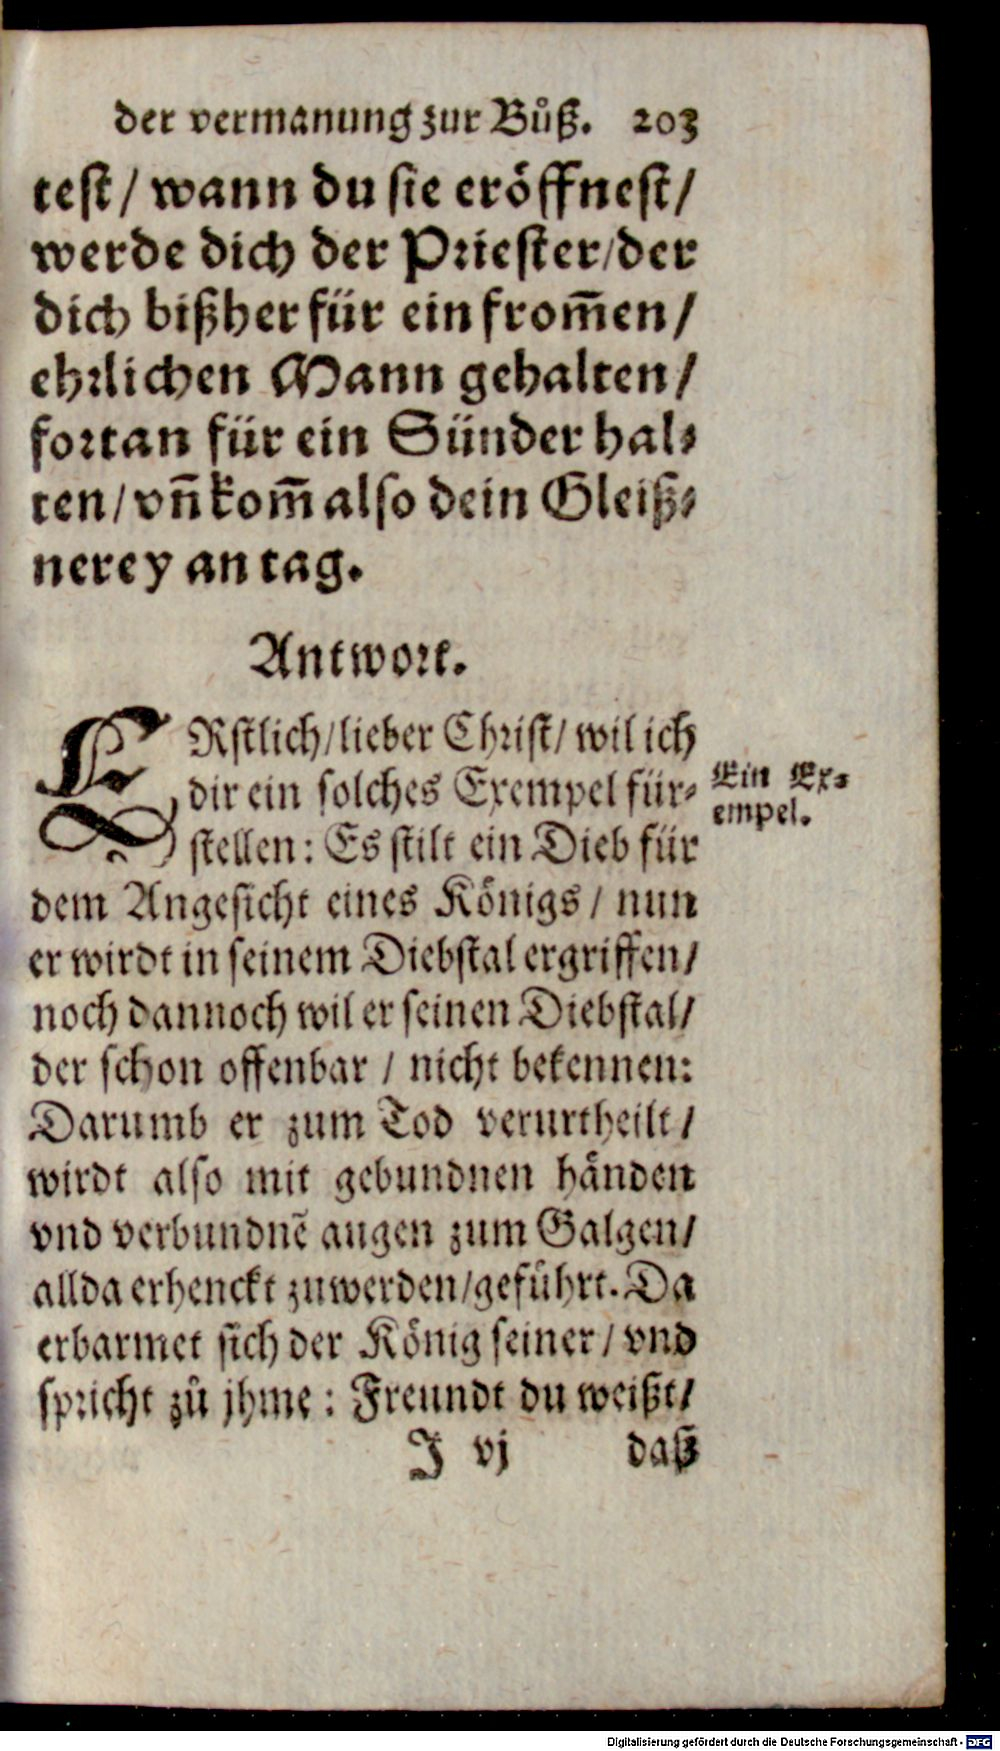 der vermanung zur Bůß. 203
test / wann du sie eröffnest /
werde dich der Priester / der
dich bißher für ein from̃en /
ehrlichen Mann gehalten /
fortan für ein Sünder hal⸗
ten / vñ kom̃ also dein Gleiß⸗
nerey an tag.
Antwort.
ERstlich / lieber Christ / wil ich
dir ein solches Exempel für⸗
stellen : Es stilt ein Dieb für
dem Angesicht eines Königs / nun
er wirdt in seinem Diebstal ergriffen /
noch dannoch wil er seinen Diebstal /
der schon offenbar / nicht bekennen:
Darumb er zum Tod verurtheilt /
wirdt also mit gebundnen händen
vnd verbundnẽ augen zum Galgen /
allda erhenckt zuwerden / geführt. Da
erbarmet sich der König seiner / vnd
spricht zů jhme : Freundt du weißt /
J vj daß
Ein Ex⸗
empel.
Digitalisierung gefördert durch die Deutsche Forschungsgemeinschaft - DFG